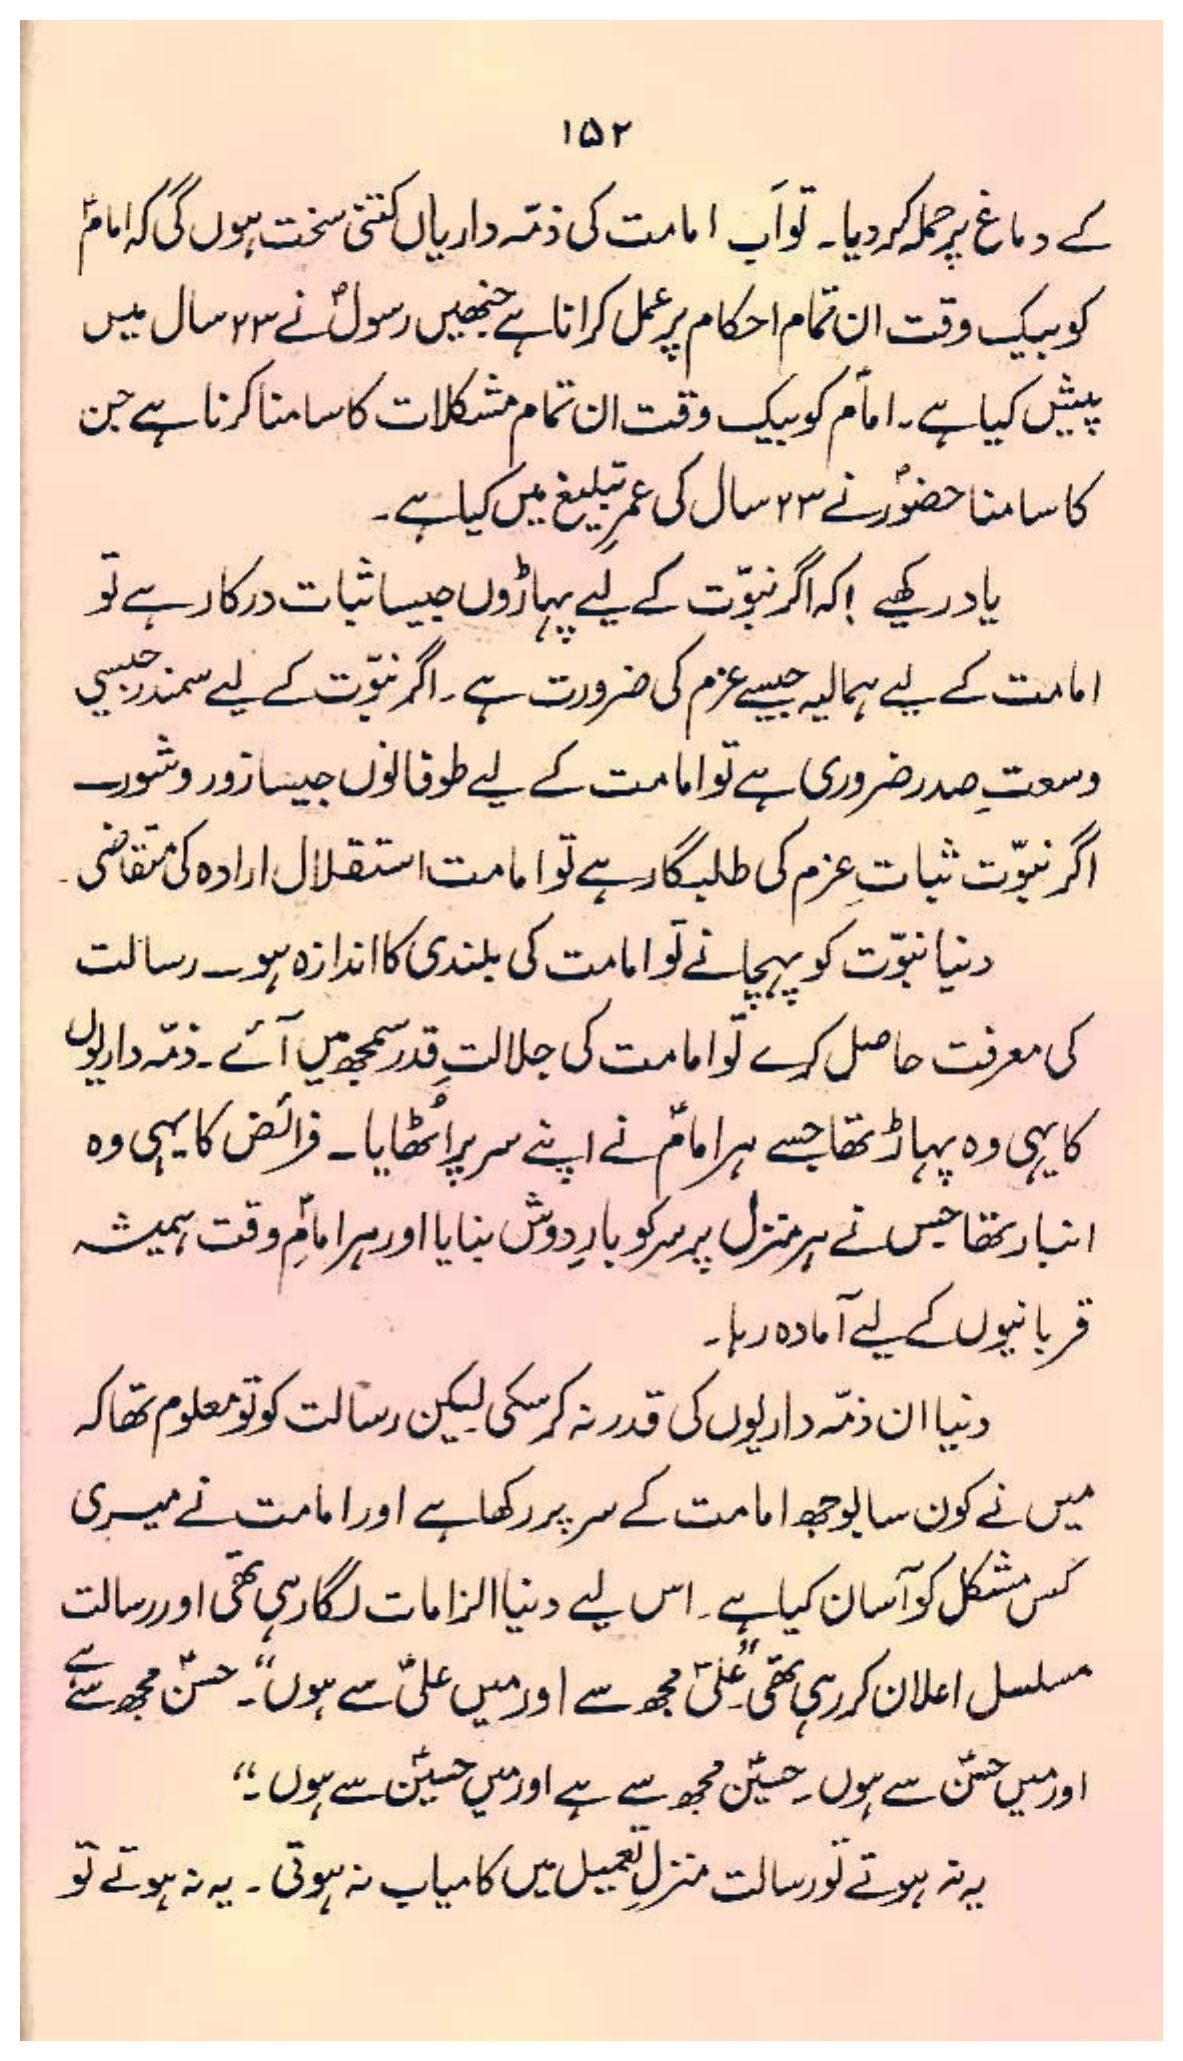 ۱۵۲
کے دماغ پر حملہ کردیا۔ تو اَب امامت کی ذمّہ داریاں کتنی سخت ہوں گی کہ امامؑ
کو بیک وقت ان تمام احکام پر عمل کرانا ہے جنھیں رسولؐ نے ۲۳ سال میں
پیش کیا ہے۔ امامؑ کو بیک وقت ان تمام مشکلات کا سامنا کرنا ہے جن
کا سامنا حضورؐ نے ۲۳ سال کی عمرِ تبلیغ میں کیا ہے۔
یاد رکھیے! کہ اگر نبوّت کے لیے پہاڑوں جیسا ثبات درکار ہے تو
امامت کے لیے ہمالیہ جیسے عزم کی ضرورت ہے۔ اگر نبوّت کے لیے سمندر جیسی
وسعتِ صدر ضروری ہے تو امامت کے لیے طوفانوں جیسا زور و شور۔
اگر نبوّت ثباتِ عزم کی طلبگار ہے تو امامت استقلال ارادہ کی متقاضی۔
دنیا نبوّت کو پہچانے تو امامت کی بلندی کا اندازہ ہو۔ رسالت
کی معرفت حاصل کرے تو امامت کی جلالتِ قدر سمجھ میں آئے۔ ذمّہ داریوں
کا یہی وہ پہاڑ تھا جسے ہر امامؑ نے اپنے سر پر اُٹھایا۔ فرائض کا یہی وہ
انبار تھا جس نے ہر منزل پر سر کو بارِ دوش بنایا اور ہر امامِؑ وقت ہمیشہ
قربانیوں کے لیے آمادہ رہا۔
دنیا ان ذمّہ داریوں کی قدر نہ کرسکی لیکن رسالت کو تو معلوم تھا کہ
میں نے کون سا بوجھ امامت کے سر پر رکھا ہے اور امامت نے میری
کس مشکل کو آسان کیا ہے۔ اس لیے دنیا الزامات لگا رہی تھی اور رسالت
مسلسل اعلان کر رہی تھی۔ "علیؑ مجھ سے اور میں علیؑ سے ہوں"۔ حسنؑ مجھ سے ہے
اور میں حسنؑ سے ہوں۔ حسینؑ مجھ سے ہے اور میں حسینؑ سے ہوں۔"
یہ نہ ہوتے تو رسالت منزلِ تعمیل میں کامیاب نہ ہوتی۔ یہ نہ ہوتے تو